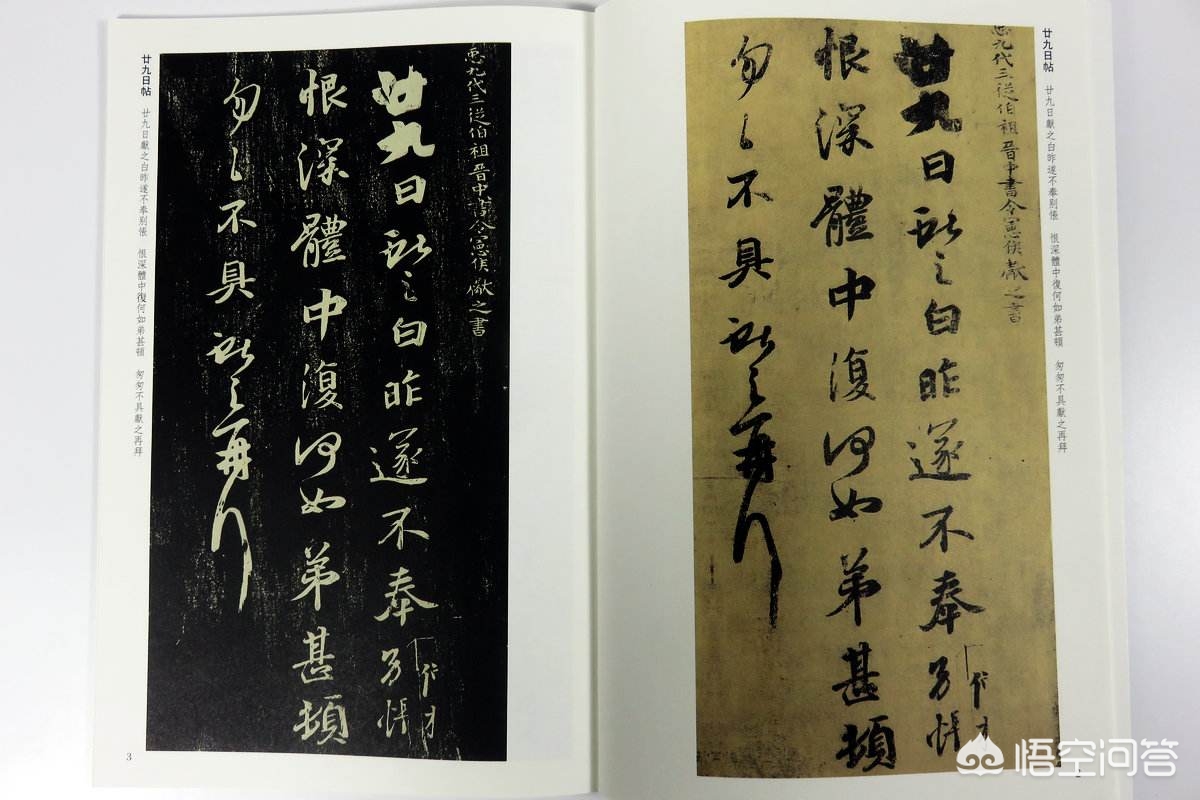 廿九日帖 廿九日獻之白昨遂不奉别悵 恨深體中復何如弟甚頓 匆匆不具獻之再拜
九代三從伯祖晉中書令憲侯獻之書
廿九日獻之白昨遂不奉别悵
恨深體中復何如弟甚頓
勿〻不具獻之再拜
九代三從伯祖晉中書令憲侯獻之書
廿九日獻之白昨遂不奉别悵
恨深體中復何如弟甚頓
勿〻不具獻之再拜
廿九日帖 廿九日獻之白昨遂不奉别悵 恨深體中復何如弟甚頓 匆匆不具獻之再拜
3
悟空问答